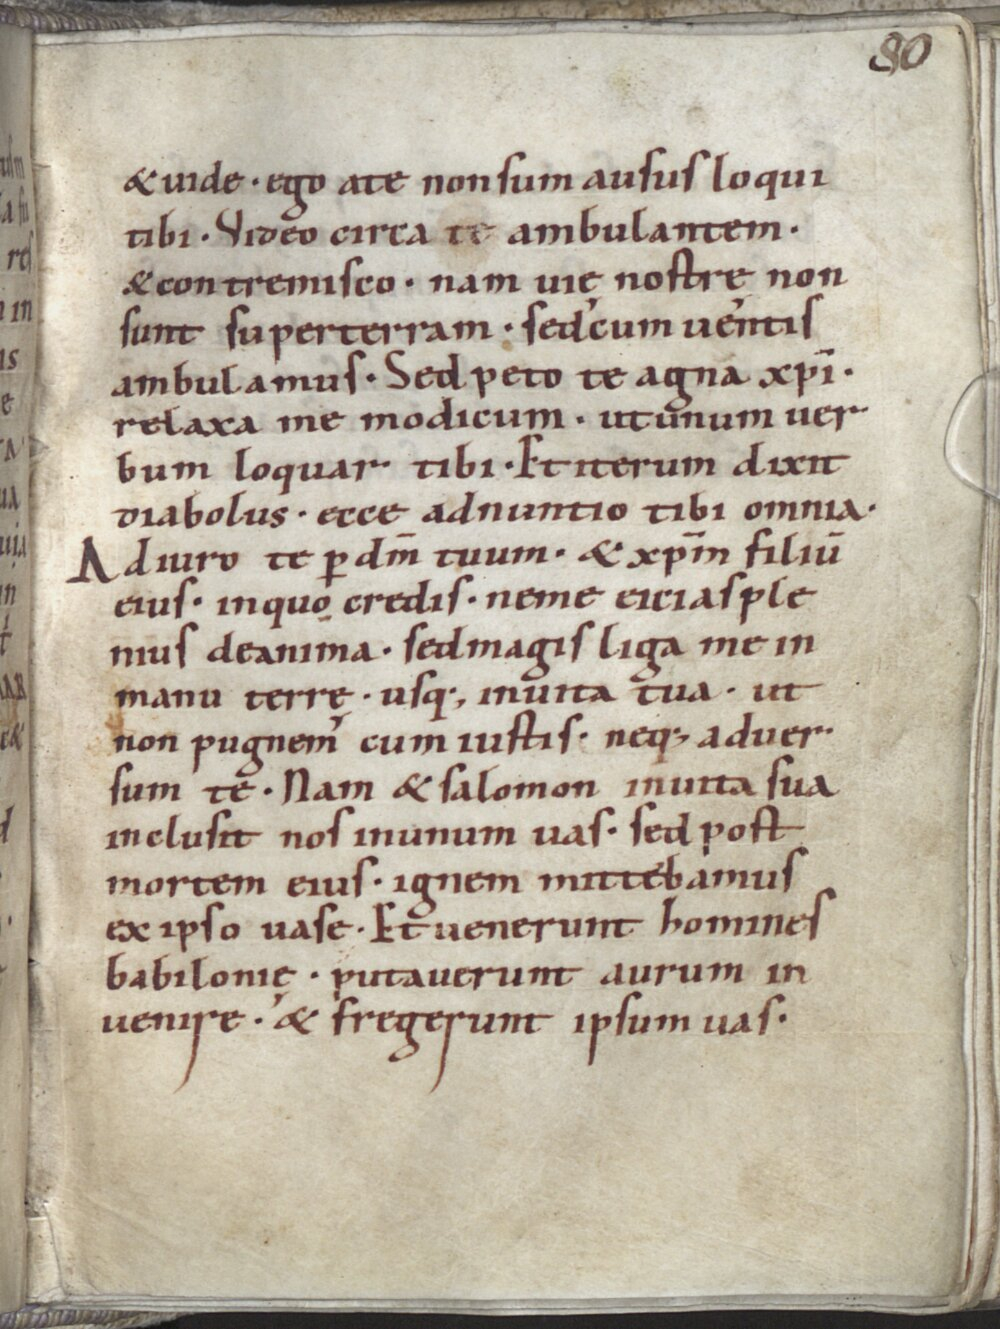 80
& uide · ego ate non sum ausus loqui
tibi · Video circa te ambulantem ·
& contremisco · nam uię nostrę non
sunt super terram · sed cum uentis
ambulamus · Sed peto te agna xp̄i ·
relaxa me modicum · ut unum uer
bum loquar tibi · Et iterum dixit
diabolus · ecce adnuntio tibi omnia ·
Adiuro te p̲ dm̄ tuum · & xp̄m filiū
eius · in quo credis · ne me eicias ple
nius de anima · sed magis liga me in
manu terrę · usq; in uita tua · ut
non pugnem cum iustis · neq; aduer
sum te · Nam & salomon in uita sua
inclusit nos in unum uas · sed post
mortem eius · ignem mittebamus
ex ipso uase · Et uenerunt homines
babilonię · putauerunt aurum in
uenire · & fregerunt ipsum uas ·